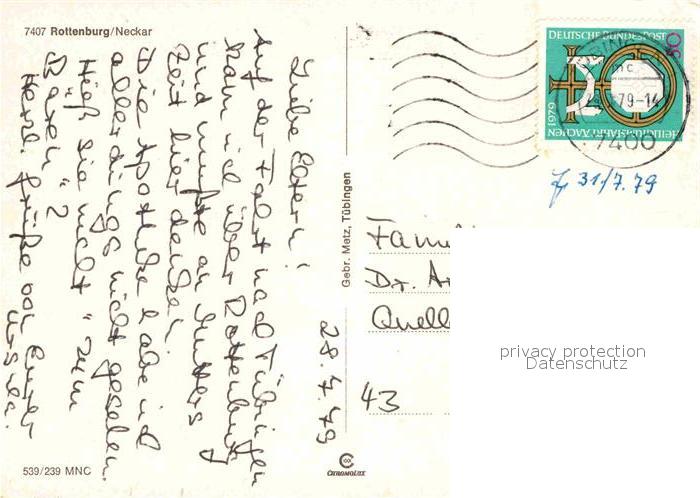 7407 Rottenburg/Neckar
Liebe Eltern!
Auf der Fahrt nach Tübingen
kam ich über Rottenburg
und mußte an Mutters
Zeit hier denken.
Die Apotheke habe ich
allerdings nicht gesehen.
Hieß sie nicht "zum
Bären"?
Herzl. Grüße von Eurer
Ursula.
28.7.79
539/239 MNC
Gebr. Metz, Tübingen
CHROMOLUX
DEUTSCHE BUNDESPOST
50
HEILIGTUMSFAHRT AACHEN
1979
79-14
7400
31/7.79
Fami
Dr. A
Quell
43
privacy protection
Datenschutz